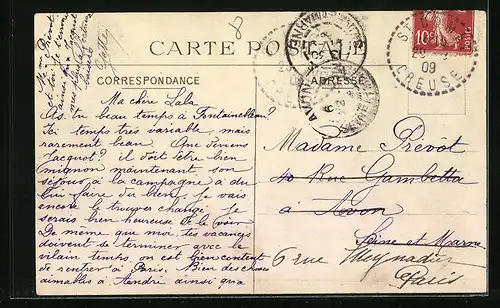 8
CARTE POSTALE
CORRESPONDANCE
ADRESSE
Ma chère Lala
As-tu beau temps à Fontainebleau?
Ici temps très variable mais
rarement beau. Que deviens
Jacquot? il doit être bien
mignon maintenant son
séjour à la campagne a du
lui faire du bien, je vais
encore le trouver changé. Je
serais bien heureuse de le voir
De même que moi, tes vacances
doivent se terminer avec le
vilain temps, on est bien content
de rentrer à Paris. Bien des choses
aimables à André ainsi qu'à
Mme Prévot
Madame Prévot
40 Rue Gambetta
à Avon
Seine et Marne
6 rue Meynadier
Paris
10c
POSTES
09
CREUSE
SEINE-ET-MARNE